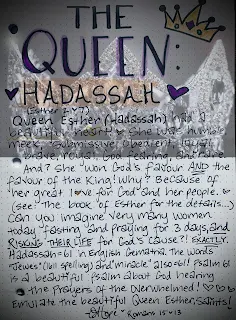 THE
QUEEN:
HADASSAH
(Esther 2 v 7)
Queen Esther (Hadassah) had a
beautiful heart. She was humble
meek, submissive, obedient, loyal
brave, royal, God fearing, and
And? She won God's favour AND the
favour of the King! Why? Because of
her great love for God and her people.
(see: The book of Esther for the details...)
Can you imagine very many women
today fasting and praying for 3 days, and
RISKING THEIR LIFE for God's cause? EXACTLY.
Hadassah = 61 in English Gematria. The words
"Jewes" (1611 spelling) and "miracle" also = 61! Psalm 61
is a beautiful psalm about God hearing
the prayers of the Overwhelmed!
Emulate the beautiful Queen Esther, Saints!
Romans 15 v 13